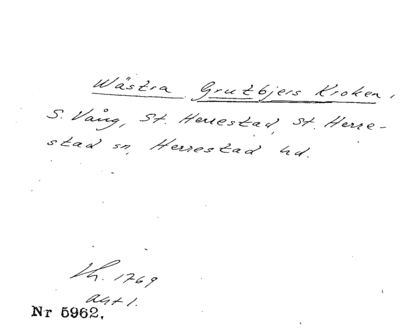 Wästra Grutbjers Kroken,
S. Vång, St. Herrestad, St. Herre-
stad sn, Herrestad hd.
Lh. 1769
akt 1.
Nr 5962.